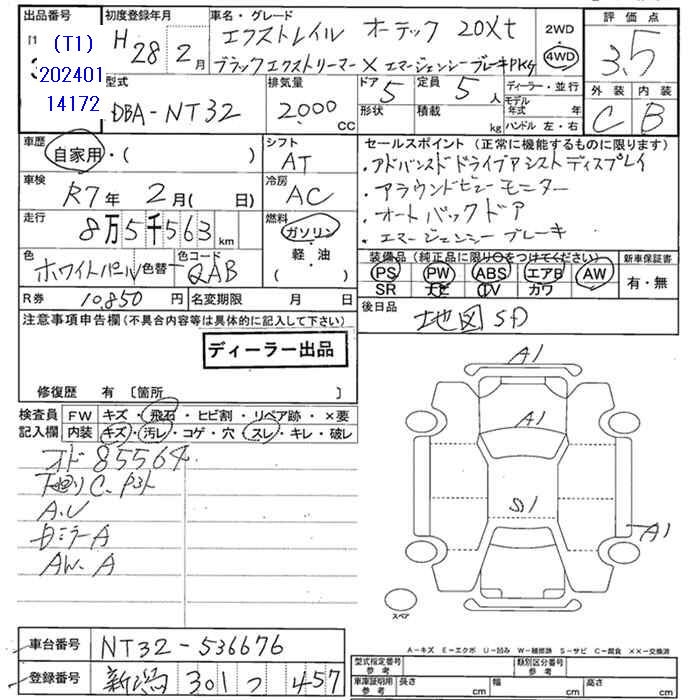 出品番号
(T1)
202401
14172
初度登録年月
H 28 2月
車名・グレード
エクストレイル オーテック 20Xt
ブラックエクストリーマーX エマージェンシーブレーキPKG
2WD
4WD
評価点
3.5
外装 内装
C B
型式
DBA-NT32
排気量
2000
CC
ドア 5
形状
定員 5人
積載 kg
ディーラー・並行
モデル年式 年
ハンドル 左・右
車歴
自家用・( )
シフト
AT
セールスポイント (正常に機能するものに限ります)
・アドバンスドドライブアシストディスプレイ
・アラウンドビューモニター
・オートバックドア
・エマージェンシーブレーキ
車検
R7年 2月( 日)
冷房
AC
走行
8万5千563km
燃料
ガソリン
軽・油
( )
色
ホワイトパール
色替
カラーコード
QAB
装備品 (純正品に限り○をつけてください)
PS PW ABS エアB AW
SR ナビ TV カワ
新車保証書
有・無
R券 10850円
名変期限 月 日
後日品
地図SD
注意事項申告欄 (不具合内容等は具体的に記入して下さい)
ディーラー出品
修復歴 有〔箇所 〕
検査員
記入欄
FW キズ・飛石・ヒビ割・リペア跡・×要
内装 キズ・汚レ・コゲ・穴・スレ・キレ・破レ
オド 85564
下廻りC、P
A.U
DミラーA
AW.A
A1
A1
S1
A1
スペア
車台番号 NT32-536676
登録番号 新潟 301 つ 457
A-キズ E-エクボ U-凹み W-補修跡 S-サビ C-腐食 ××-交換済
型式指定番号
類別区分番号
車庫証明用参考
長さ cm
幅 cm
高さ cm